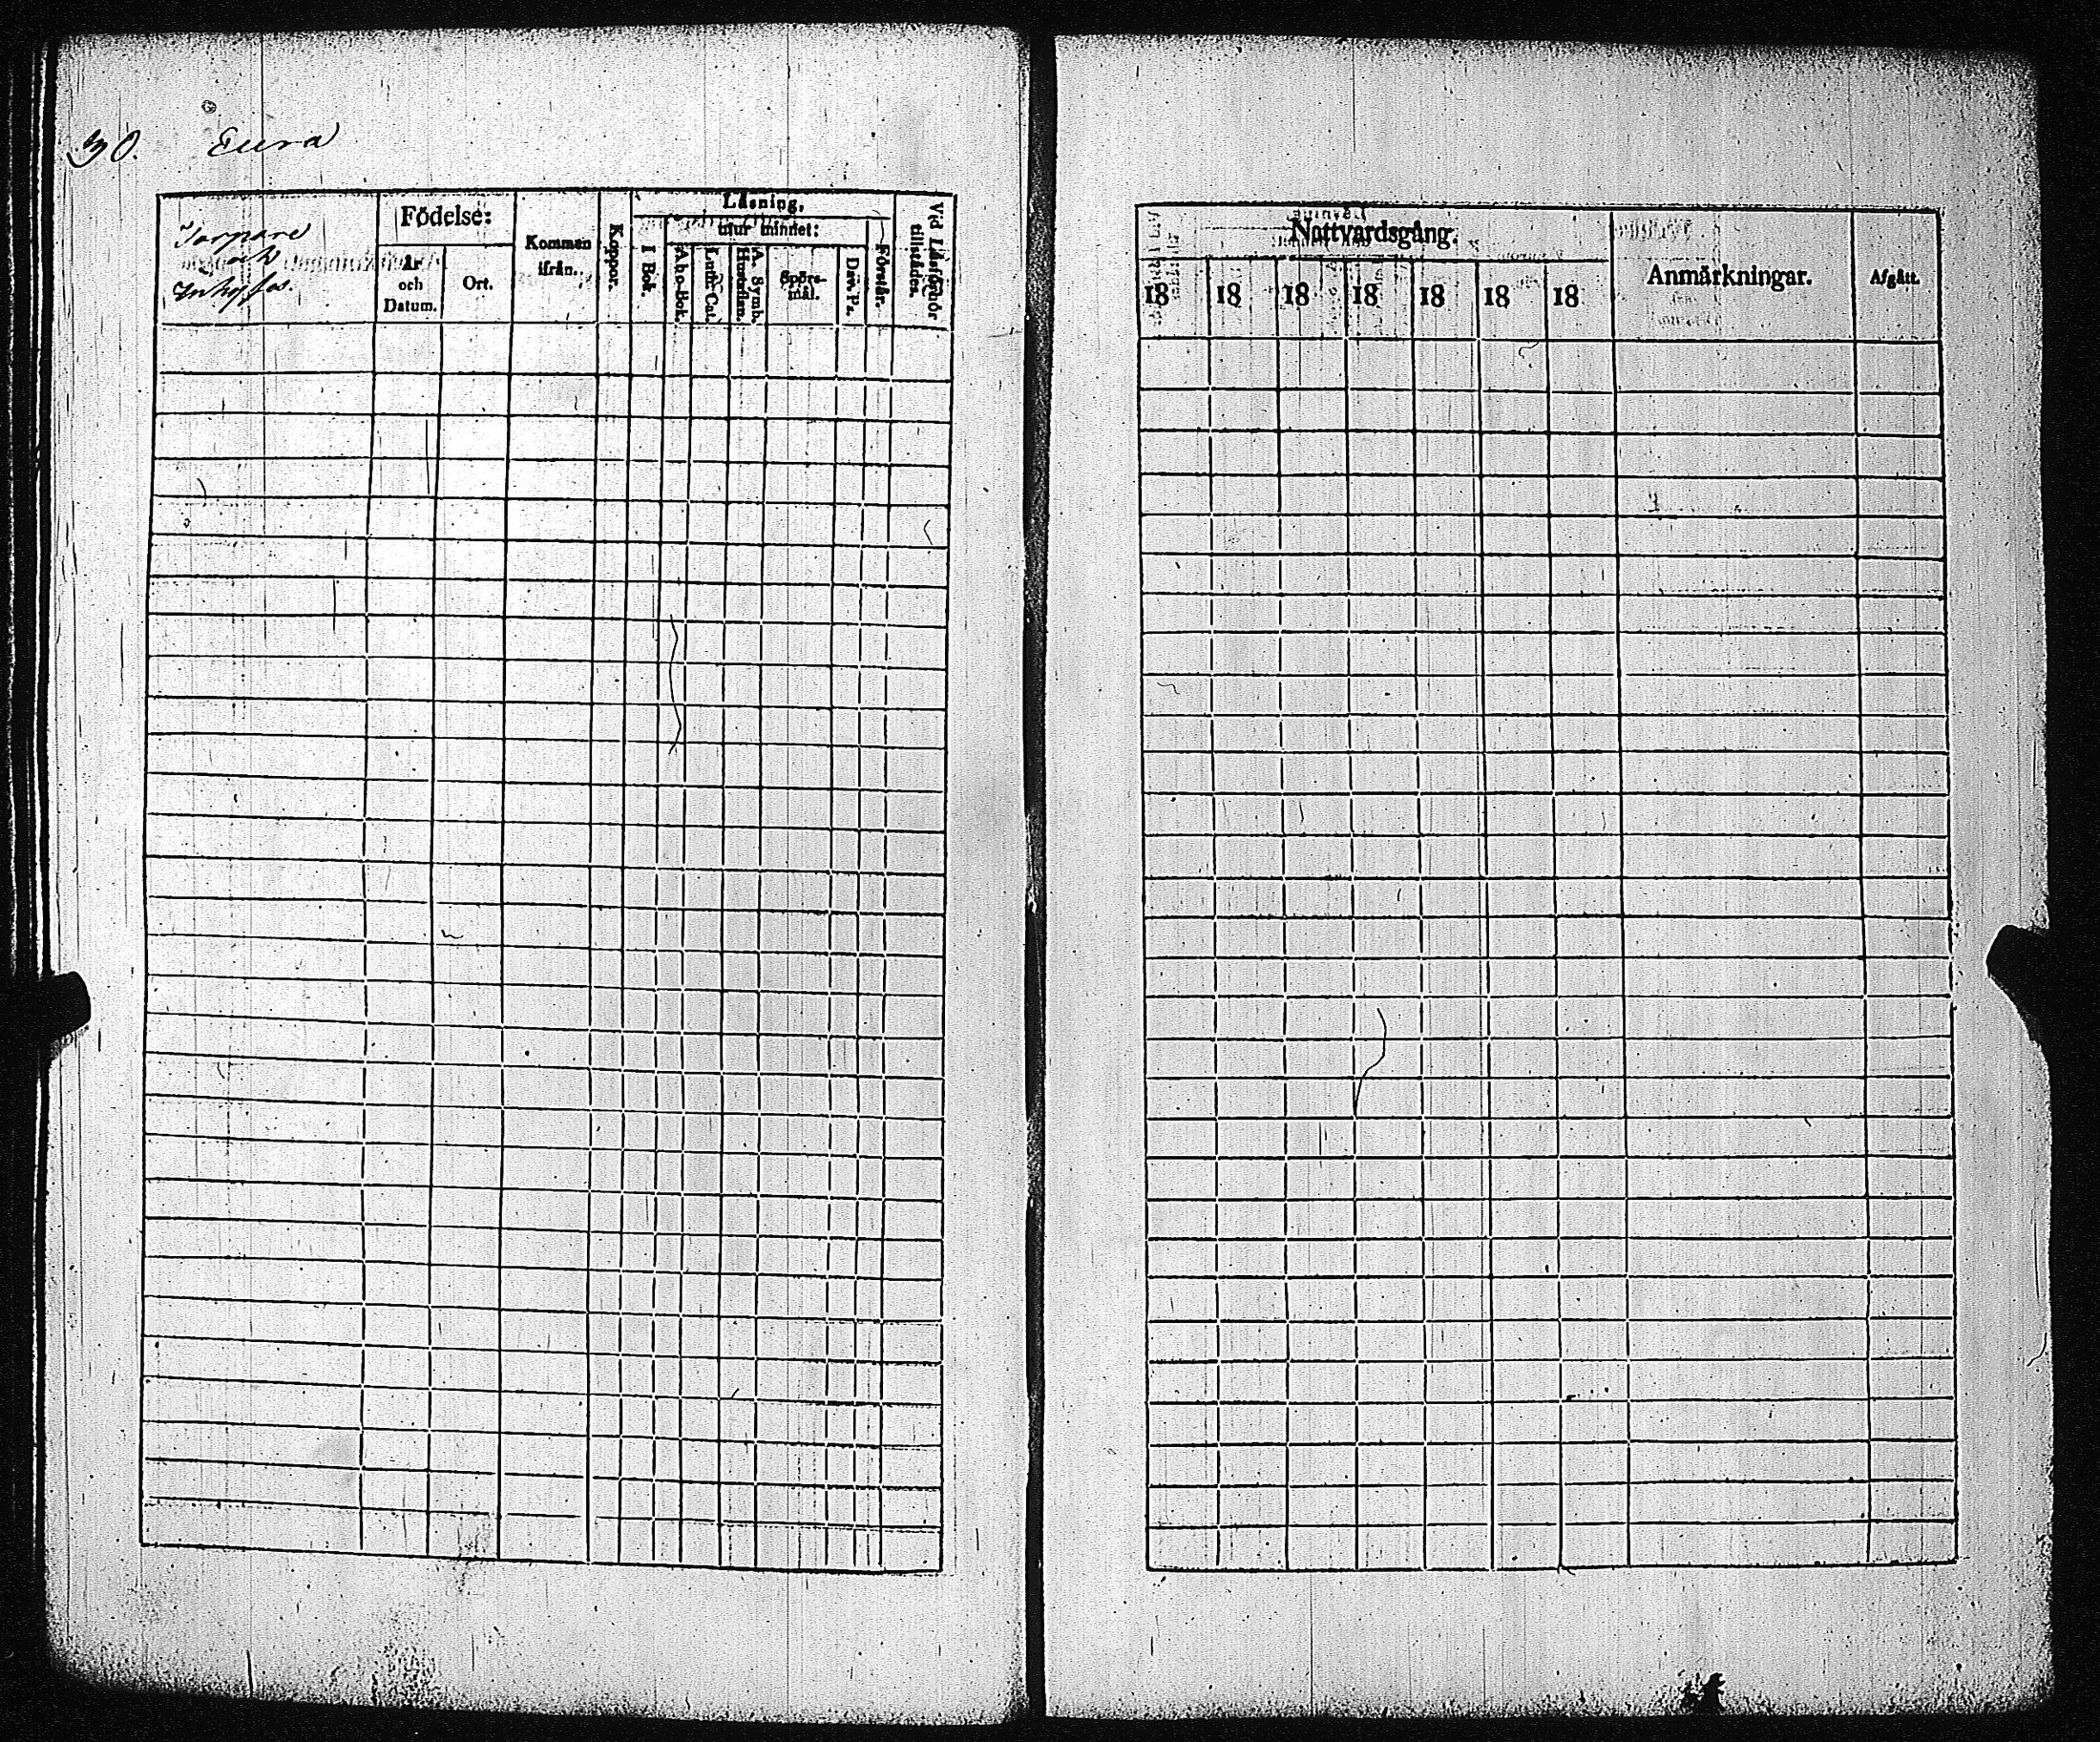 30. Eura
Torpare
och
Inhyses.
Födelse:
År
och
Datum.
Ort.
Kommen
ifrån.
Koppor.
Läsning,
I Bok.
utur minnet:
A b c-Bok.
Luth. Cat.
Hustaflan.
A. Symb.
Spörs-
mål.
Dav. Ps.
Förstår.
Vid Läsförhör
tillstädes.
Nattvardsgång.
18 18 18 18 18 18 18
Anmärkningar.
Afgått.